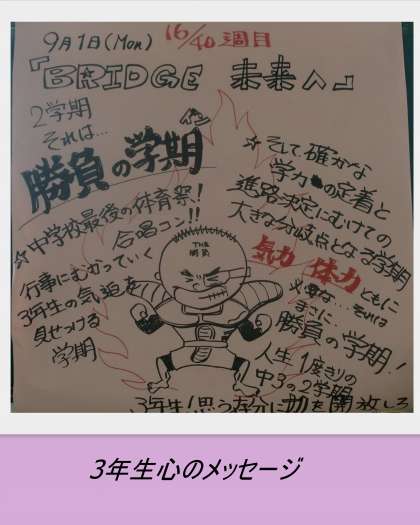 9月1日(Mon) 16/40週目
『BRIDGE 未来へ』
2学期
それは…
勝負の学期
☆中学校最後の体育祭!
合唱コン!!
行事にむかっていく
3年生の気迫を
見せつける
学期
☆そして確かな
学力の定着と
進路決定にむけての
大きな分岐点となる学期
気力 体力 ともに
必要な… それは
まさに…
勝負の学期!
人生1度きりの
中3の2学期
THE
勝負
3年生!思う存分に力を開放しろ
3年生心のメッセージ